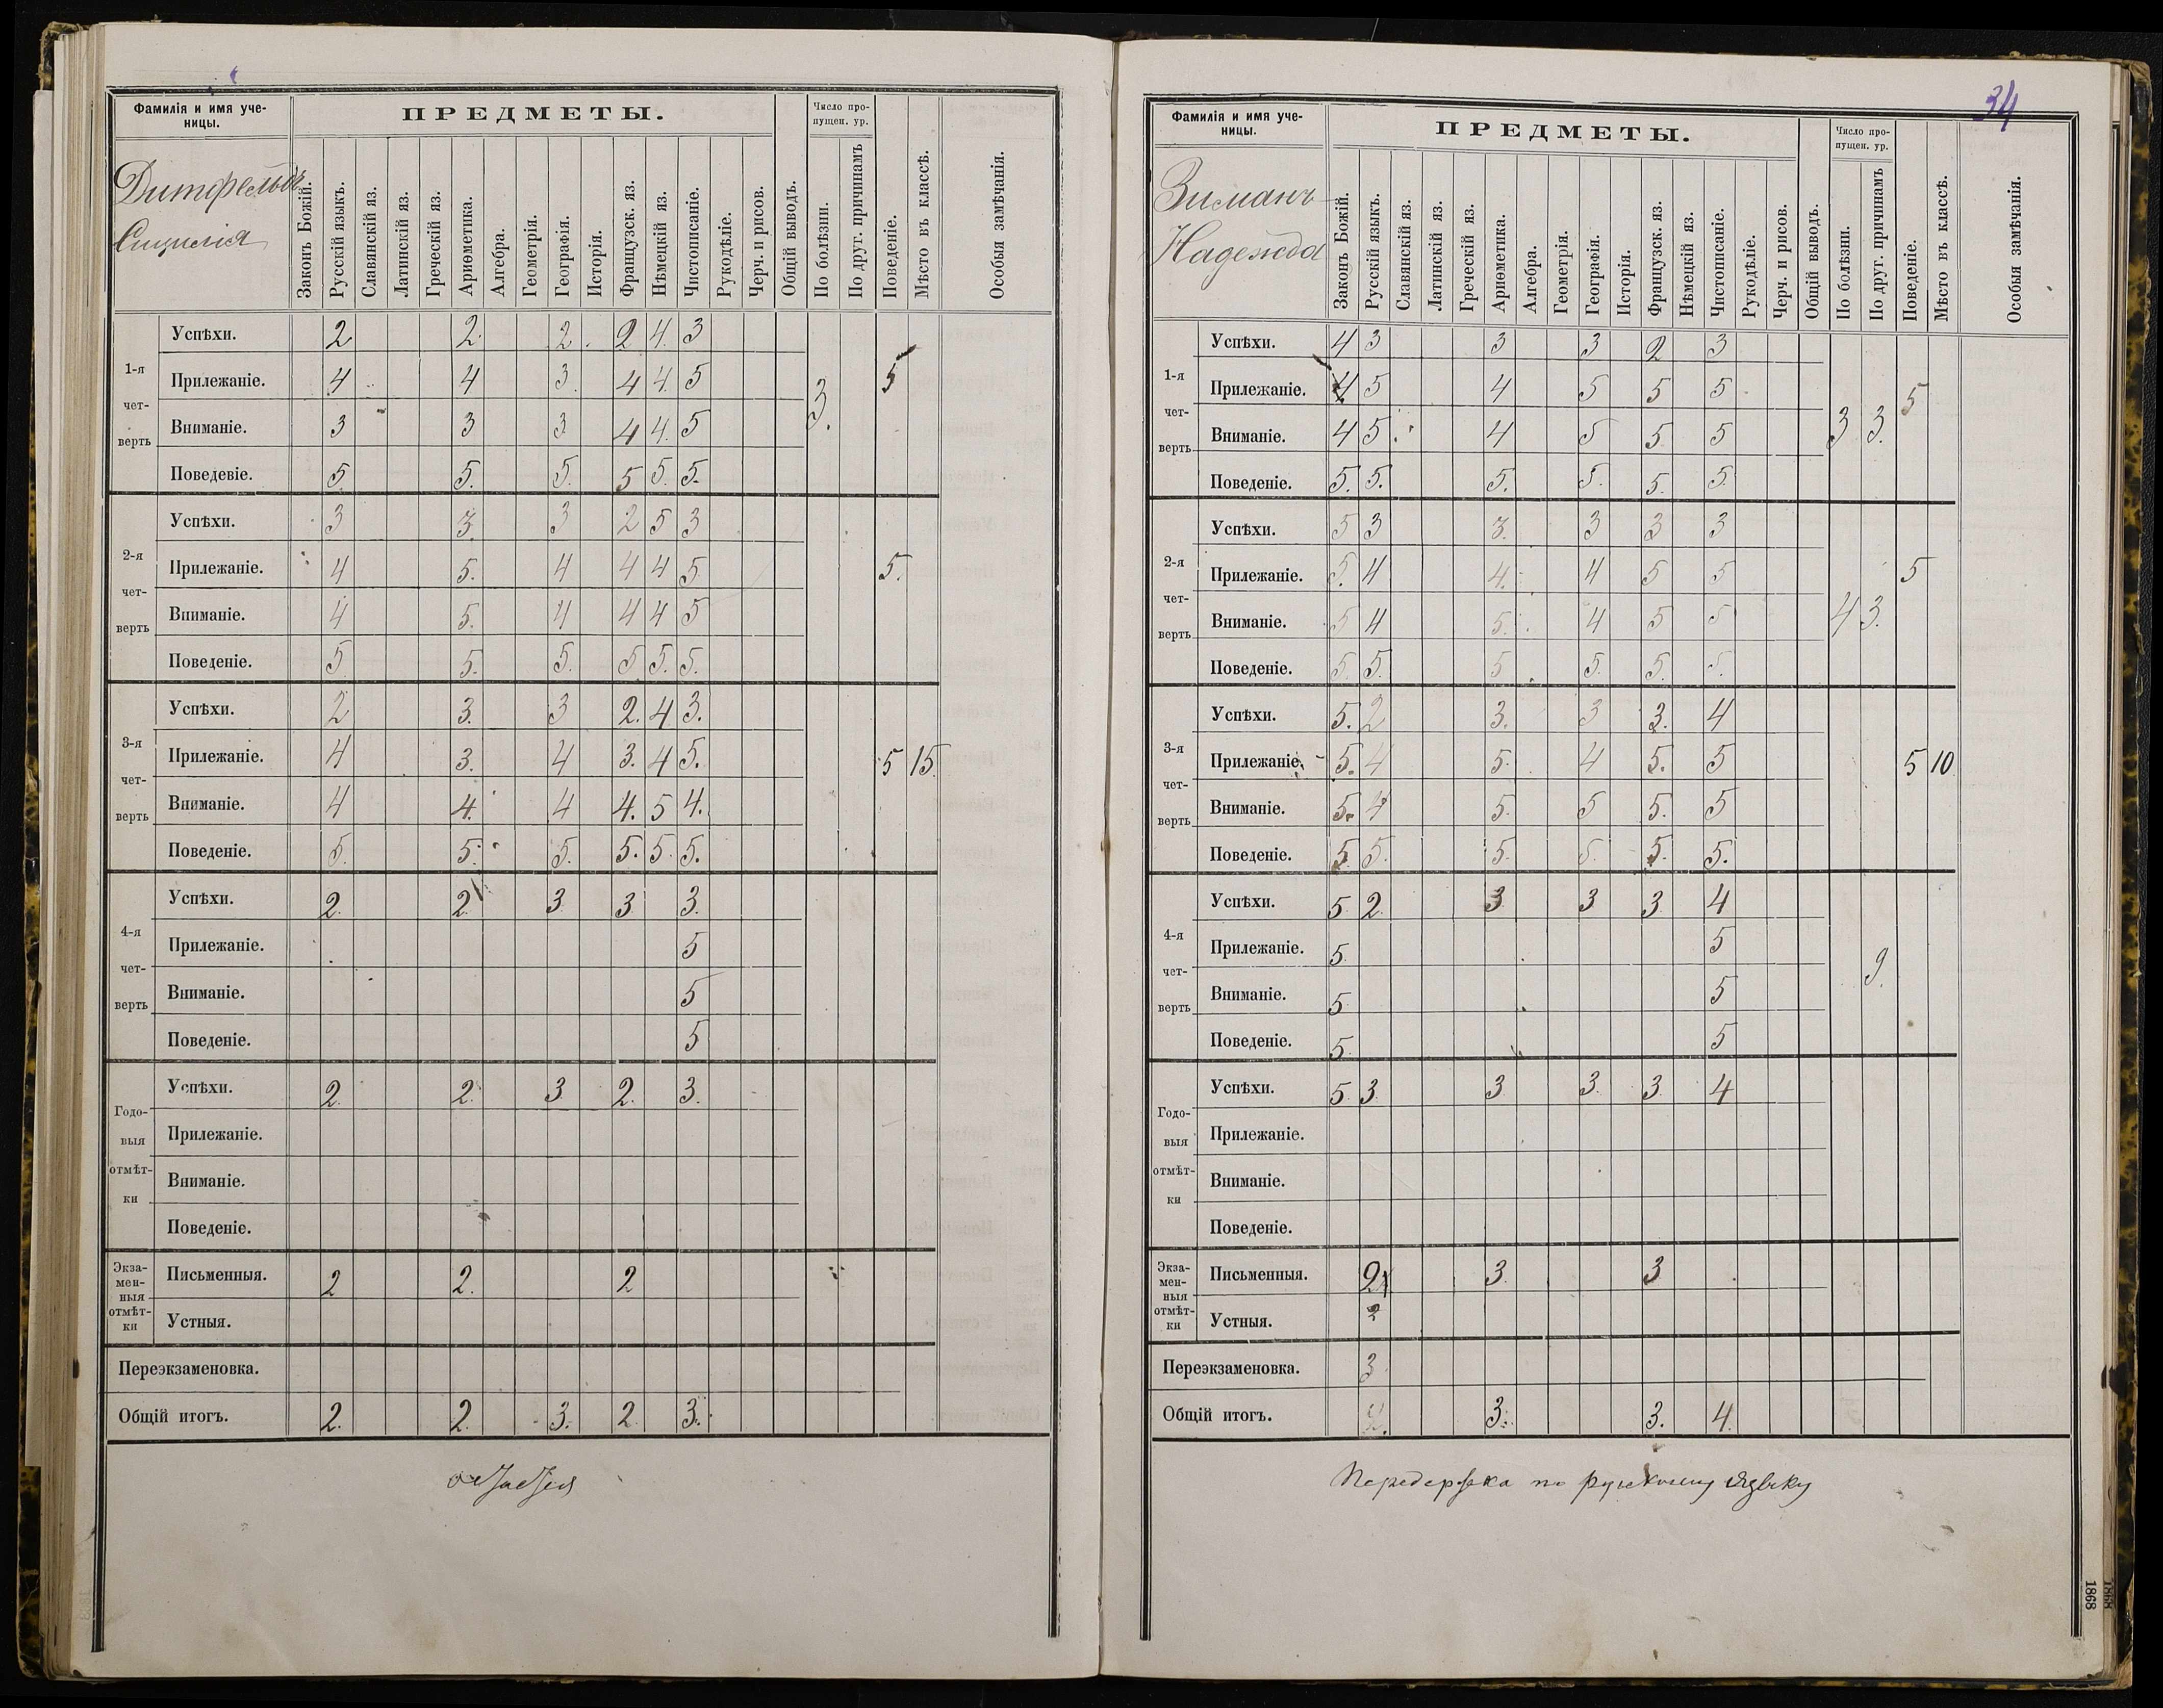 Фамилія и имя уче-
ницы.
ПРЕДМЕТЫ.
Число про-
пущен. ур.
Сицилія
Законъ Божій.
Русскій языкъ.
Славянскій яз.
Латинскій яз.
Греческій яз.
Ариѳметика.
Алгебра.
Геометрія.
Географія.
Исторія.
Французск. яз.
Нѣмецкій яз.
Чистописаніе.
Рукодѣліе.
Черч. и рисов.
Общій выводъ.
По болѣзни.
По друг. причинамъ
Поведеніе.
Мѣсто въ классѣ.
Особыя замѣчанія.
1-я чет-верть
Успѣхи. 2 2. 2. 2 4. 3
Прилежаніе. 4 4 3. 4 4. 5 3. 5
Вниманіе. 3 3 3 4 4. 5
Поведевіе. 5. 5. 5. 5 5. 5.
2-я чет-верть
Успѣхи. 3 3. 3 2 5 3
Прилежаніе. 4 5. 4 4 4 5 5.
Вниманіе. 4 5. 4 4 4 5
Поведеніе. 5 5. 5. 5. 5. 5.
3-я чет-верть
Успѣхи. 2 3. 3 2. 4 3.
Прилежаніе. 4 3. 4 3. 4 5. 5 15
Вниманіе. 4 4. 4 4. 5 4.
Поведеніе. 5. 5. 5. 5. 5. 5.
4-я чет-верть
Успѣхи. 2. 2 3 3 3.
Прилежаніе. 5
Вниманіе. 5
Поведеніе. 5
Годо-выя отмѣт-ки
Успѣхи. 2. 2. 3 2. 3.
Прилежаніе.
Вниманіе.
Поведеніе.
Экза-мен-ныя отмѣт-ки
Письменныя. 2 2. 2
Устныя.
Переэкзаменовка.
Общій итогъ. 2. 2. 3. 2. 3.
34
Фамилія и имя уче-
ницы.
ПРЕДМЕТЫ.
Число про-
пущен. ур.
Зиманъ
Надежда
Законъ Божій.
Русскій языкъ.
Славянскій яз.
Латинскій яз.
Греческій яз.
Ариѳметика.
Алгебра.
Геометрія.
Географія.
Исторія.
Французск. яз.
Нѣмецкій яз.
Чистописаніе.
Рукодѣліе.
Черч. и рисов.
Общій выводъ.
По болѣзни.
По друг. причинамъ
Поведеніе.
Мѣсто въ классѣ.
Особыя замѣчанія.
1-я чет-верть
Успѣхи. 4 3 3 3 2 3
Прилежаніе. 4 5 4 5 5 5 5
Вниманіе. 4 5 4 5 5 5 3 3.
Поведеніе. 5. 5. 5. 5. 5. 5.
2-я чет-верть
Успѣхи. 5 3 3. 3 3 3
Прилежаніе. 5. 4 4. 4 5 5 5
Вниманіе. 5 4 5. 4 5 5 4 3.
Поведеніе. 5. 5. 5 5. 5. 5.
3-я чет-верть
Успѣхи. 5. 2 3. 3 3. 4
Прилежаніе. 5. 4 5. 4 5. 5 5 10
Вниманіе. 5. 4 5. 5 5. 5
Поведеніе. 5. 5. 5. 5. 5. 5.
4-я чет-верть
Успѣхи. 5. 2. 3 3 3 4
Прилежаніе. 5. 5 9.
Вниманіе. 5. 5
Поведеніе. 5. 5
Годо-выя отмѣт-ки
Успѣхи. 5 3. 3 3. 3 4
Прилежаніе.
Вниманіе.
Поведеніе.
Экза-мен-ныя отмѣт-ки
Письменныя. 3. 3
Устныя. 2
Переэкзаменовка. 3
Общій итогъ. 3. 3. 4.
Передержка по русскому языку
1868
1868